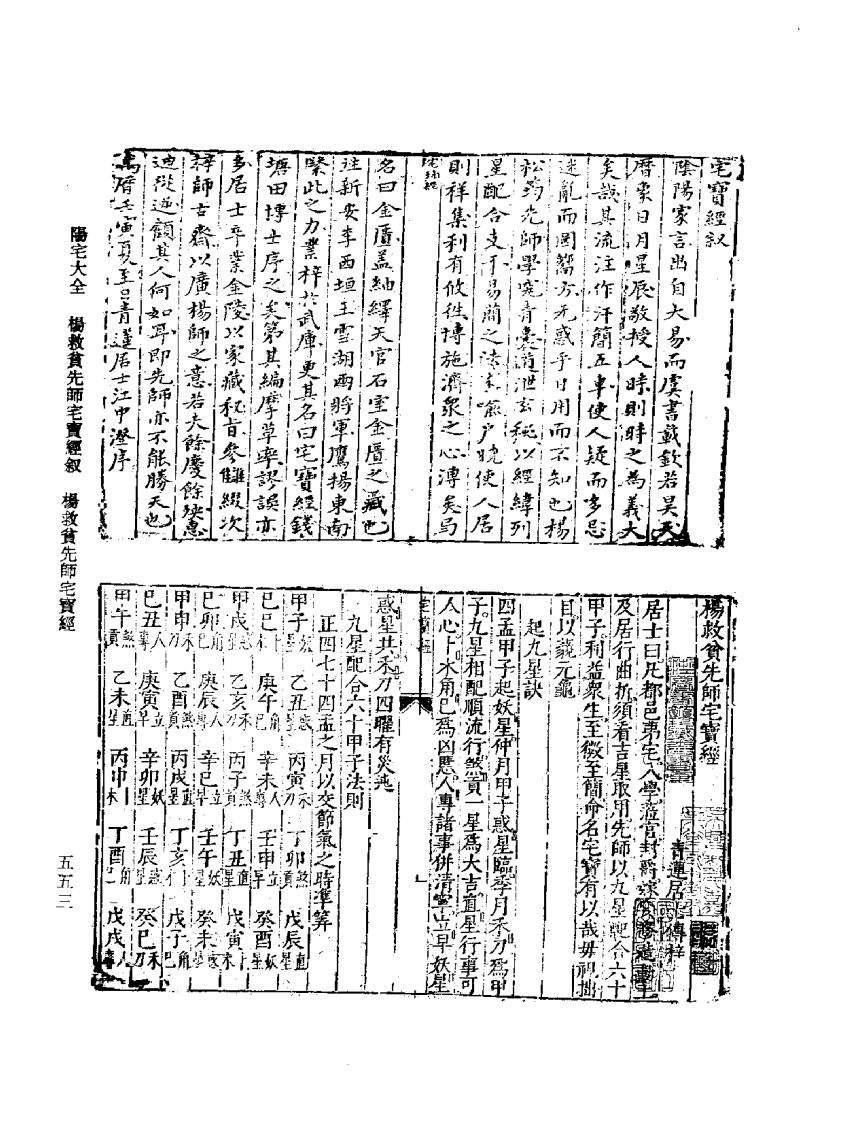 宅寶經叙
陰陽家言出自大易而虞書載欽若昊天
曆象日月星辰敬授人時則時之為義大
矣哉其流注作汗簡五車使人疑而多忌
迷亂而罔嚮方尤惑乎日用而不知也楊
松筠先師學究青囊道泄玄秘以經緯列
星配合支干易簡之法家喻户曉使人居
則祥集利有攸往博施濟衆之心溥矣曷
宅寶經
名曰金匱盖紬繹天官石室金匱之藏也
往新安李西垣王雪湖兩將軍鷹揚東南
緊此之力業梓於武庫更其名曰宅寶經錢
塘田博士序之矣第其編摩草率謬誤亦
多居士卒業金陵以家藏秘旨參讎綴次
諄師古齋以廣楊師之意若夫餘慶餘殃惠
迪從逆顧其人何如耳即先師亦不能勝天也
萬曆壬寅夏至日青蓮居士江中澄序
楊救貧先師宅寶經
青蓮居士 梓
居士曰凡都邑第宅入學蒞官封爵
及居行曲折須看吉星取用先師以九星配合六十
甲子利益衆生至微至簡命名宅寶有以哉毋視拙
目以義元龜
起九星訣
四孟甲子起妖星仲月甲子惑星臨季月禾刀爲甲
子九星相配順流行煞貢一星爲大吉直星行事可
人心卜木角巳爲凶應人專諸事併清寧立早妖星
宅寶經
惑星共禾刀四曜有災迍
九星配合六十甲子法則
正四七十四孟之月以交節氣之時準算
甲子妖星 乙丑惑星 丙寅禾刀 丁卯煞貢 戊辰直星
己巳卜木 庚午角巳 辛未人專 壬申立早 癸酉妖星
甲戌惑星 乙亥禾刀 丙子煞貢 丁丑直星 戊寅卜木
己卯角巳 庚辰人專 辛巳立早 壬午妖星 癸未惑星
甲申禾刀 乙酉煞貢 丙戌直星 丁亥卜木 戊子角巳
己丑人專 庚寅立早 辛卯妖星 壬辰惑星 癸巳禾刀
甲午煞貢 乙未直星 丙申卜木 丁酉角巳 戊戌人專
陽宅大全 楊救貧先師宅寶經叙 楊救貧先師宅寶經
五五三